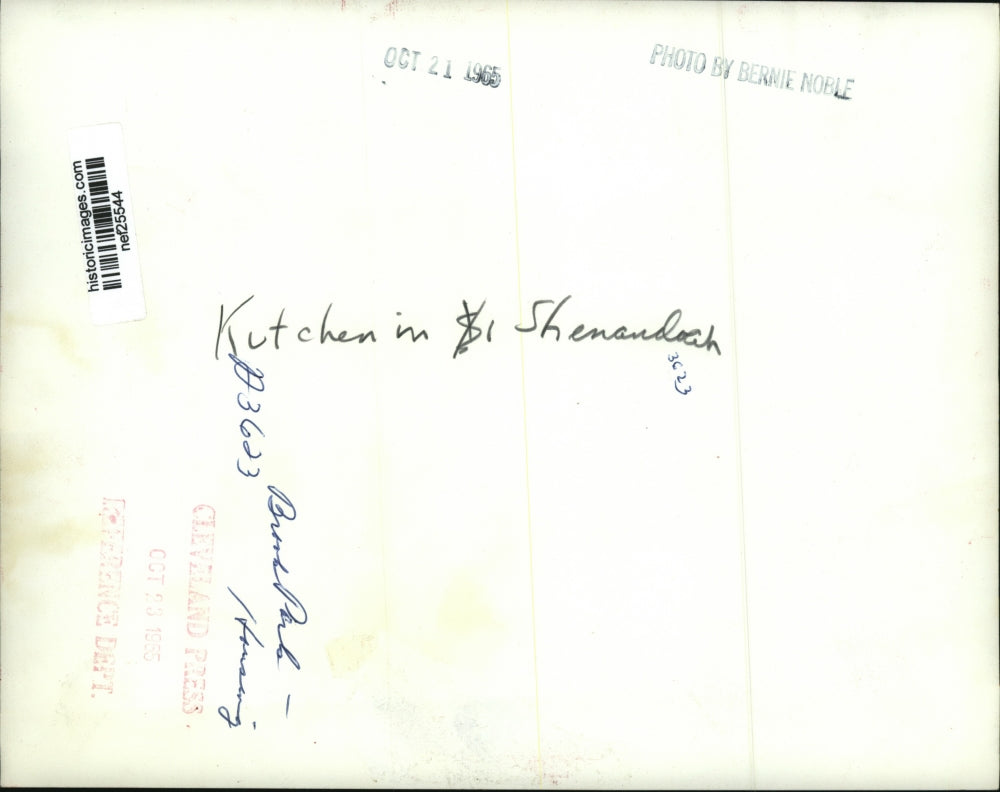 OCT 21 1965
PHOTO BY BERNIE NOBLE
historicimages.com
nef25544
Kutchen in $1 Shenandoah
3623
A3623
Brook Park –
Housing
CLEVELAND PRESS.
OCT 23 1965
REFERENCE DEPT.